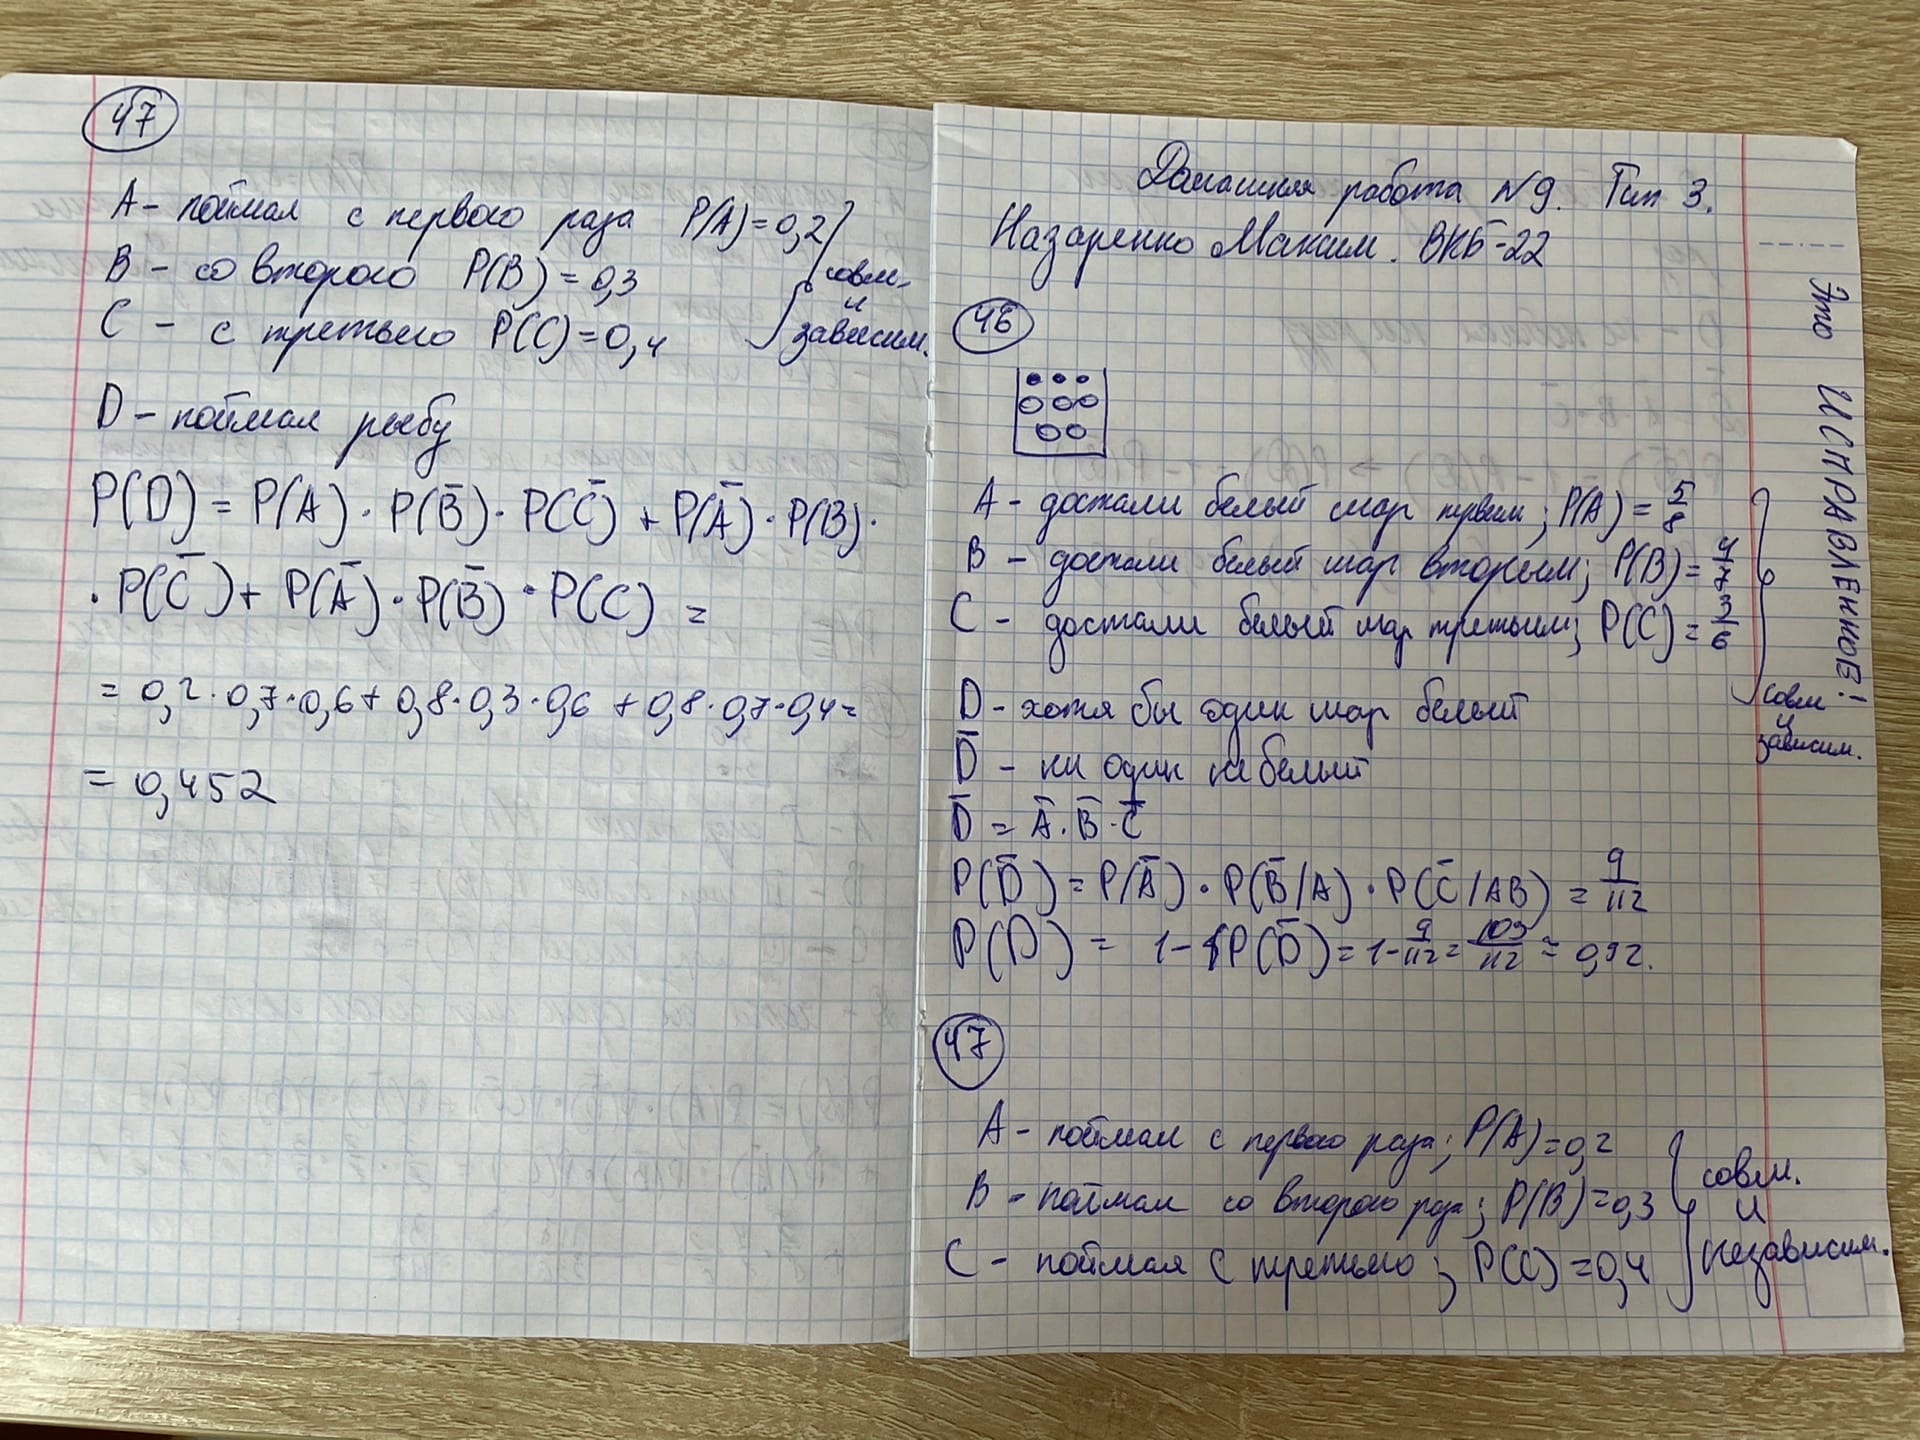 47
А - поймал с первого раза P(A)=0,2
B - со второго P(B)=0,3
C - с третьего P(C)=0,4
совм.
и
зависим.
D - поймал рыбу
P(D) = P(A)·P(B̄)·P(C̄)+P(Ā)·P(B)·
·P(C̄)+P(Ā)·P(B̄)·P(C) =
= 0,2·0,7·0,6+0,8·0,3·0,6+0,8·0,7·0,4=
= 0,452
Домашняя работа №9. Тип 3.
Назаренко Максим. ВКБ-22
Это ИСПРАВЛЕННОВ!
46
А - достали белый шар первым; P(A) = 5/8
B - достали белый шар вторым; P(B) = 4/7
C - достали белый шар третьим; P(C) = 3/6
совм
и
зависим.
D - хотя бы один шар белый
D̄ - ни один не белый
D̄ = Ā·B̄·C̄
P(D̄) = P(Ā)·P(B̄/A)·P(C̄/AB) = 9/112
P(D) = 1-P(D̄)=1-9/112=103/112≈0,92.
47
A - поймал с первого раза; P(A)=0,2
B - поймал со второго раза; P(B)=0,3
C - поймал с третьего; P(C)=0,4
совм.
и
независим.